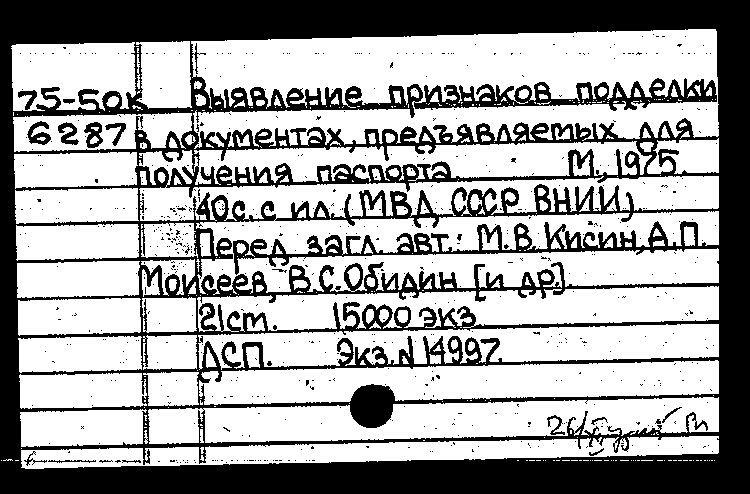 75-50к Выявление признаков подделки
6287 в документах, предъявляемых для
получения паспорта М., 1975.
40с. с ил. (МВД СССР ВНИИ)
Перед загл. авт.: М.В.Кисин, А.П.
Моисеев, В.С.Обидин [и др].
21см. 15000 экз.
ДСП. Экз.N 14997.
26/
6